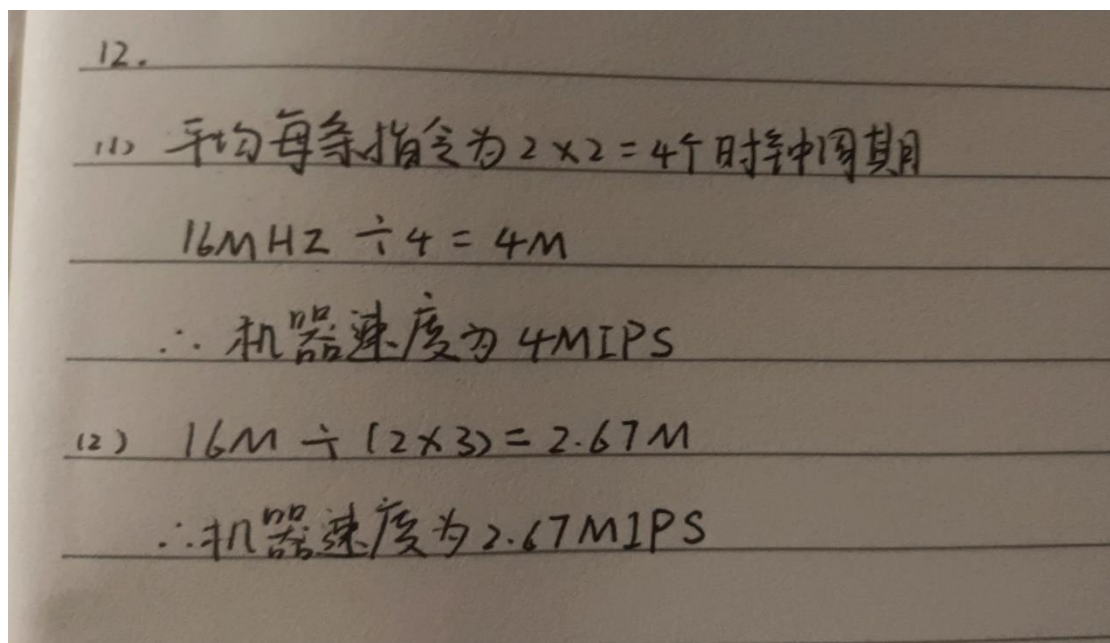 12.
(1) 平均每条指令为 2×2=4个时钟周期
16MHZ ÷4 = 4M
∴ 机器速度为 4MIPS
(2) 16M ÷ (2×3) = 2.67M
∴机器速度为 2.67MIPS